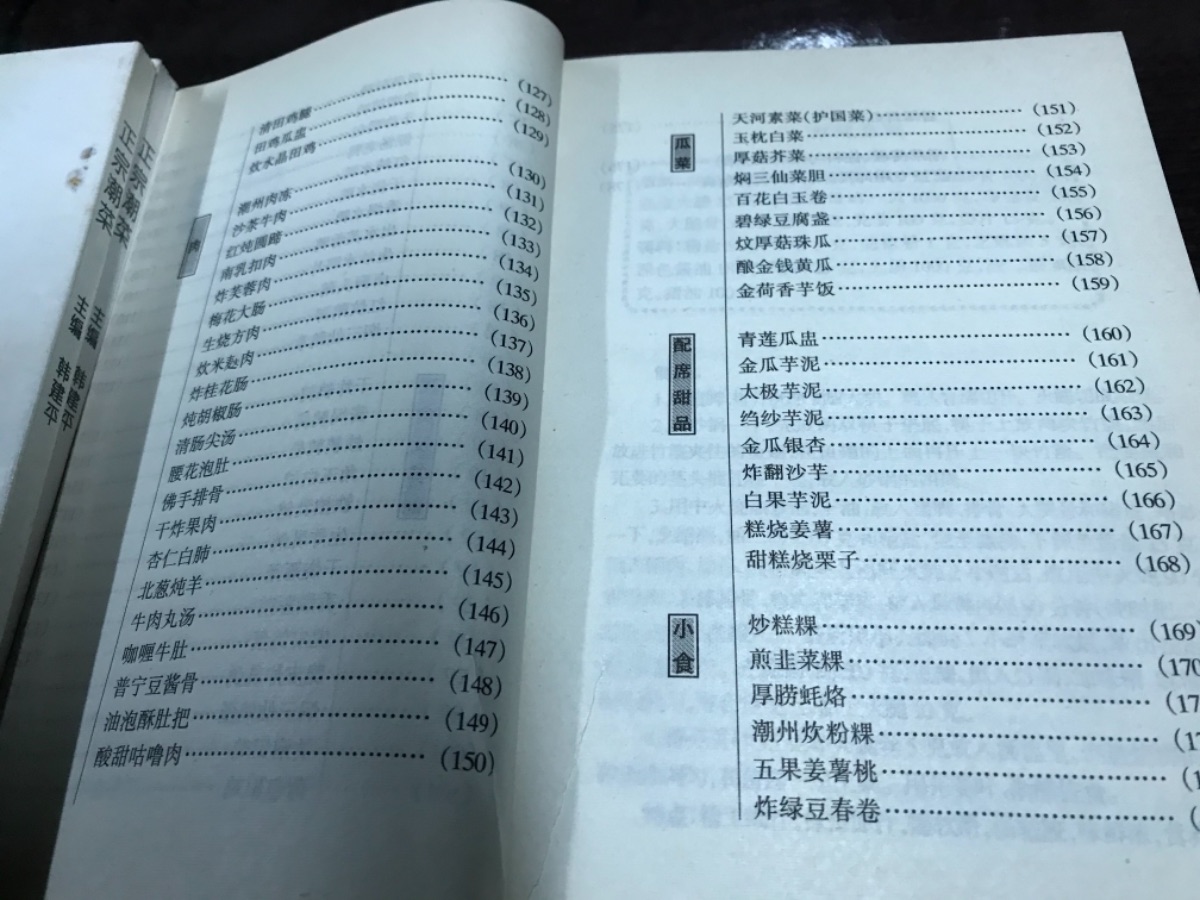 正宗潮菜 主编 韩建平
正宗潮菜 主编 韩建平
清田鸡腿 (127)
田鸡瓜盅 (128)
炊水晶田鸡 (129)
肉
潮州肉冻 (130)
沙茶牛肉 (131)
红炖圆蹄 (132)
南乳扣肉 (133)
炸芙蓉肉 (134)
梅花大肠 (135)
生烧方肉 (136)
炊米麩肉 (137)
炸桂花肠 (138)
炖胡椒肠 (139)
清肠尖汤 (140)
腰花泡肚 (141)
佛手排骨 (142)
干炸果肉 (143)
杏仁白肺 (144)
北葱炖羊 (145)
牛肉丸汤 (146)
咖喱牛肚 (147)
普宁豆酱骨 (148)
油泡酥肚把 (149)
酸甜咕噜肉 (150)
瓜菜
天河素菜(护国菜) (151)
玉枕白菜 (152)
厚菇芥菜 (153)
焖三仙菜胆 (154)
百花白玉卷 (155)
碧绿豆腐盏 (156)
炆厚菇珠瓜 (157)
酿金钱黄瓜 (158)
金荷香芋饭 (159)
配席甜品
青莲瓜盅 (160)
金瓜芋泥 (161)
太极芋泥 (162)
绉纱芋泥 (163)
金瓜银杏 (164)
炸翻沙芋 (165)
白果芋泥 (166)
糕烧姜薯 (167)
甜糕烧栗子 (168)
小食
炒糕粿 (169)
煎韭菜粿 (170
厚朥蚝烙 (17
潮州炊粉粿 (17
五果姜薯桃 (1
炸绿豆春卷 (